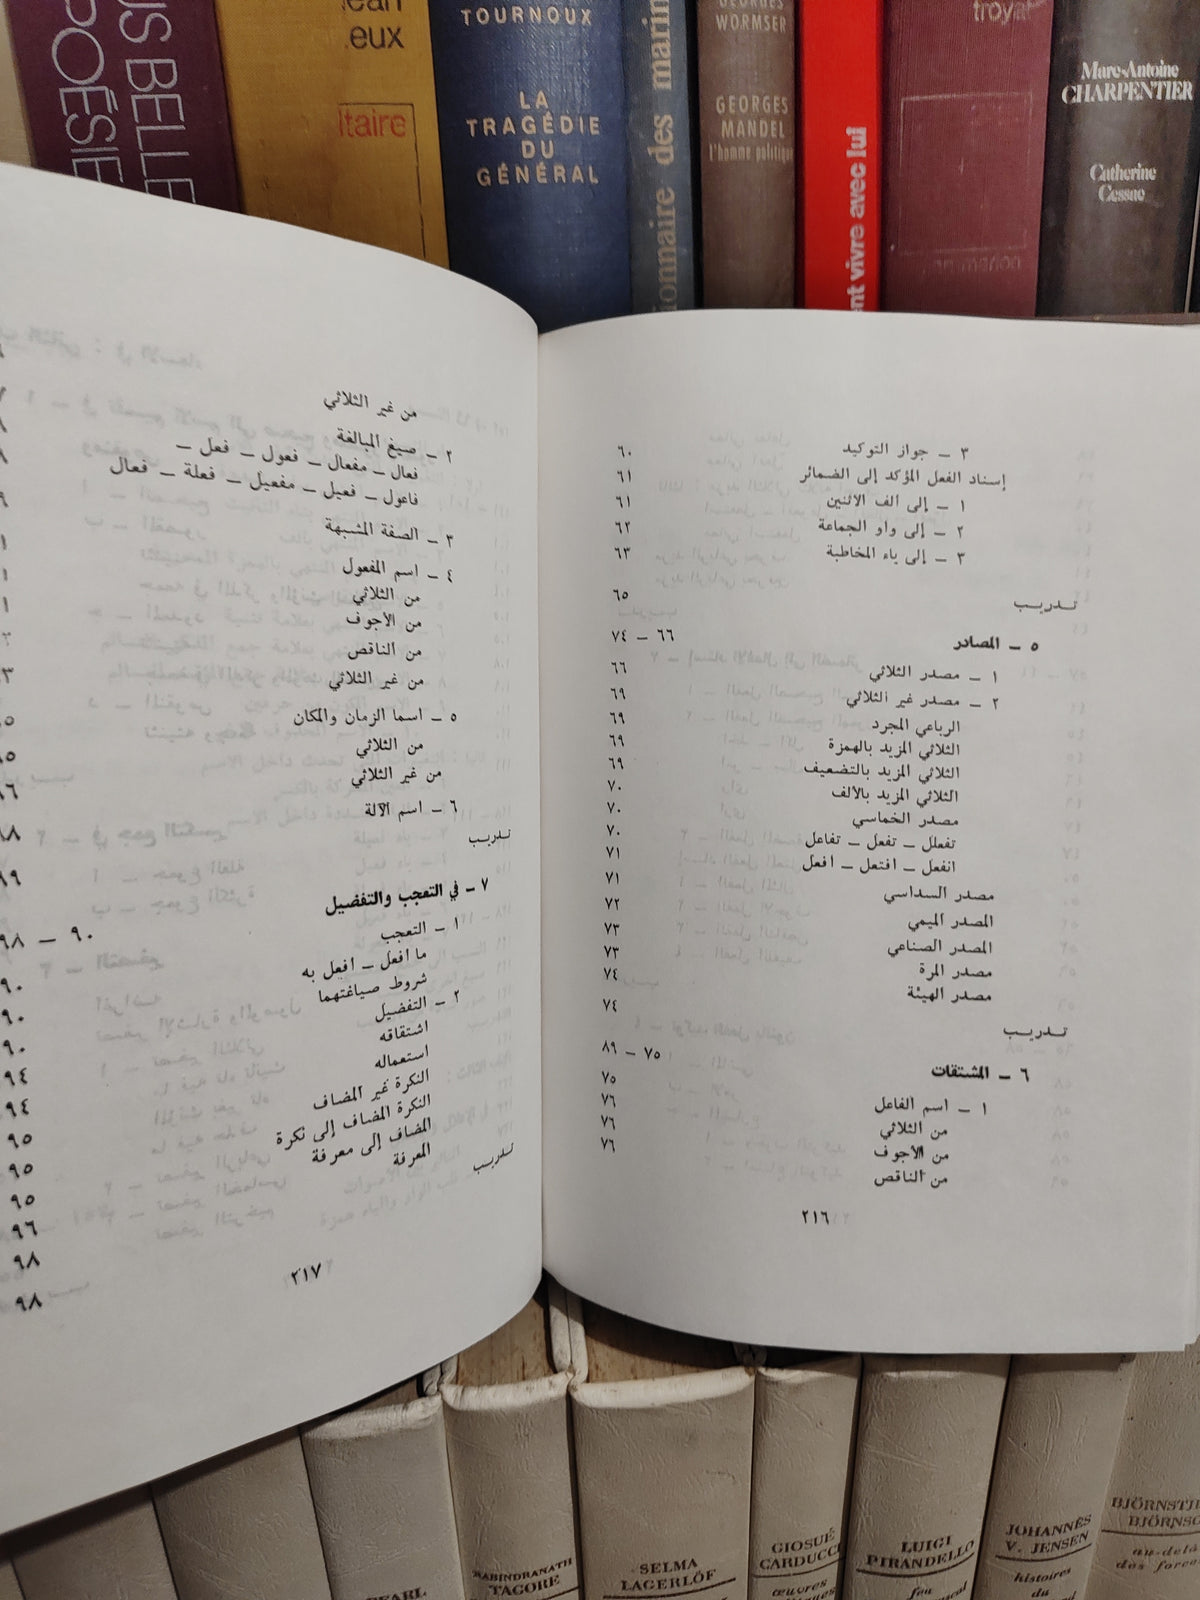 US BELLE
POÉSIE
ean
eux
itaire
TOURNOUX
LA
TRAGÉDIE
DU
GÉNÉRAL
ionnaire des marin
GEORGES
WORMSER
GEORGES
MANDEL
l'homme politique
ent vivre avec lui
troyat
Marc-Antoine
CHARPENTIER
Catherine
Cessac
٣ ـ جواز التوكيد ٦٠
إسناد الفعل المؤكد إلى الضمائر ٦١
١ ـ إلى الف الاثنين ٦١
٢ ـ إلى واو الجماعة ٦٢
٣ ـ إلى ياء المخاطبة ٦٣
تدريب ٦٥
٥ ـ المصادر ٦٦ ـ ٧٤
١ ـ مصدر الثلاثي ٦٦
٢ ـ مصدر غير الثلاثي ٦٩
الرباعي المجرد ٦٩
الثلاثي المزيد بالهمزة ٦٩
الثلاثي المزيد بالتضعيف ٦٩
الثلاثي المزيد بالألف ٧٠
مصدر الخماسي ٧٠
تفعلل ـ تفعل ـ تفاعل ٧٠
انفعل ـ افتعل ـ افعل ٧١
مصدر السداسي ٧١
المصدر الميمي ٧٢
المصدر الصناعي ٧٣
مصدر المرة ٧٣
مصدر الهيئة ٧٤
تدريب ٧٤
٦ ـ المشتقات ٧٥ ـ ٨٩
١ ـ اسم الفاعل ٧٥
من الثلاثي ٧٦
من الأجوف ٧٦
من الناقص ٧٦
٢١٦
من غير الثلاثي
٢ ـ صيغ المبالغة
فعال ـ مفعال ـ فعول ـ فعل ـ
فاعول ـ فعيل ـ مفعيل ـ فعلة ـ فعال
٣ ـ الصفة المشبهة
٤ ـ اسم المفعول
من الثلاثي
من الأجوف
من الناقص
من غير الثلاثي
٥ ـ اسما الزمان والمكان
من الثلاثي
من غير الثلاثي
٦ ـ اسم الآلة
تدريب
٧ ـ في التعجب والتفضيل ٩٠ ـ ٩٨
١ ـ التعجب ٩٠
ما افعل ـ افعل به ٩٠
شروط صياغتهما ٩٠
٢ ـ التفضيل ٩٤
اشتقاقه ٩٤
استعماله ٩٥
النكرة غير المضاف ٩٥
النكرة المضاف إلى نكرة ٩٥
المضاف إلى معرفة ٩٦
المعرفة ٩٨
تدريب ٩٨
٢١٧
PEARL
RABINDRANATH
TAGORE
SELMA
LAGERLÖF
GIOSUÉ
CARDUCCI
œuvres
LUIGI
PIRANDELLO
feu
JOHANNÈS
V. JENSEN
histoires
du
BJÖRNSTJ
BJÖRNSO
au-delà
des forces